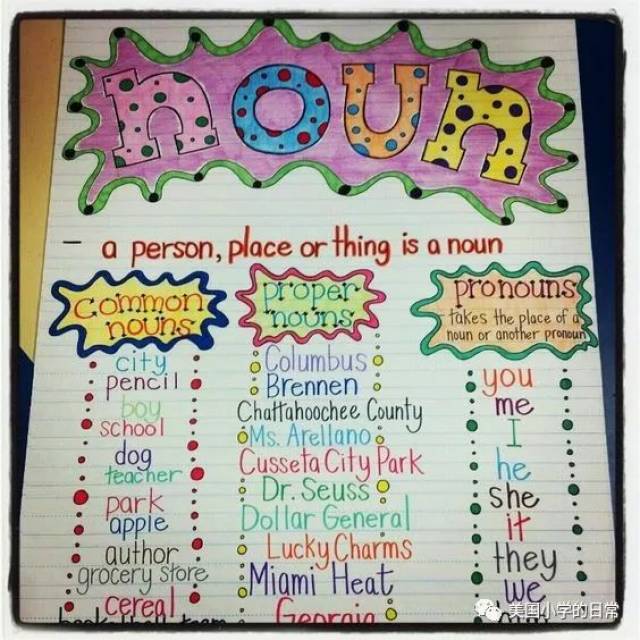 noun
– a person, place or thing is a noun
common
nouns
city
pencil
boy
school
dog
teacher
park
apple
author
grocery store
cereal
basketball team
proper
nouns
Columbus
Brennen
Chattahoochee County
Ms. Arellano
Cusseta City Park
Dr. Seuss
Dollar General
Lucky Charms
Miami Heat
Georgia
pronouns
takes the place of a
noun or another pronoun
you
me
I
he
she
it
they
we
美国小学的日常